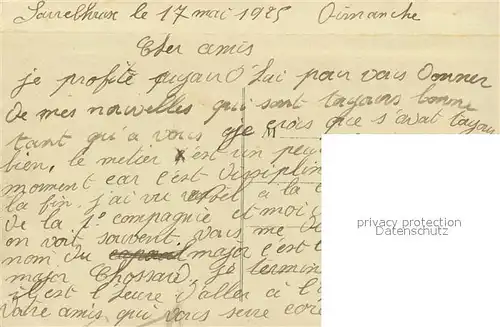 Sarrebruck le 17 mai 1925 Dimanche
Cher amis
je profite aujourd'hui pour vous donner
de mes nouvelles qui sont toujours bonne
tant qu'a vous je crois que s'a vat toujou
bien, le metier c'est un peu
moment car c'est disiplin
la fin. j'ai vu à la
de la 1e compagnie et moi
on voit souvent. vous me di
nom du major c'est
major Chossard, je termin
il est l'heure d'aller a l'
votre amis qui vous serre
privacy protection
Datenschutz